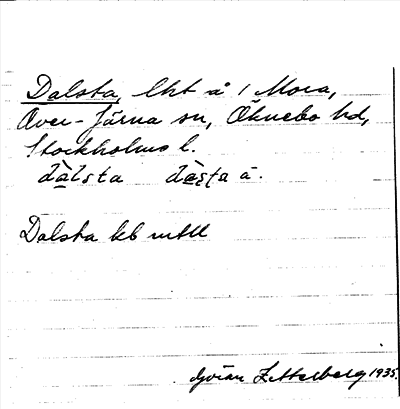 Dalsta, lht å 1 Mora,
Över-Järna sn, Öknebo hd,
Stockholms l.
dàlsta dàsta ä.
Dalsta kb mtll
Göran Zetterberg 1935.